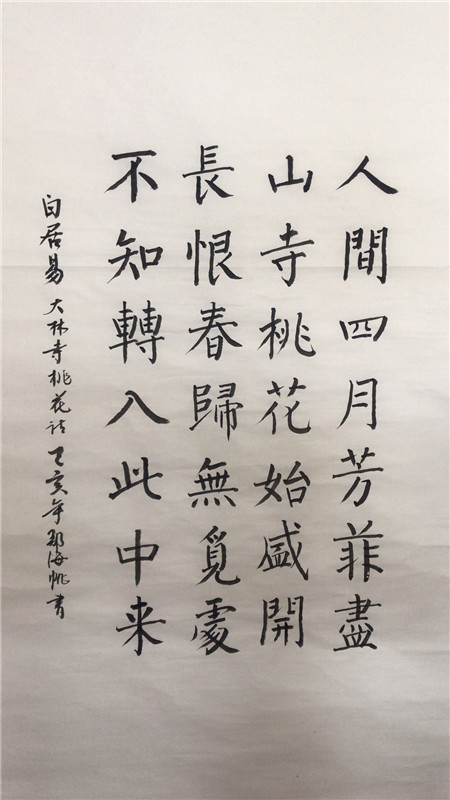 人間四月芳菲盡
山寺桃花始盛開
長恨春歸無覓處
不知轉入此中来
白居易大林寺桃花诗己亥年海帆書